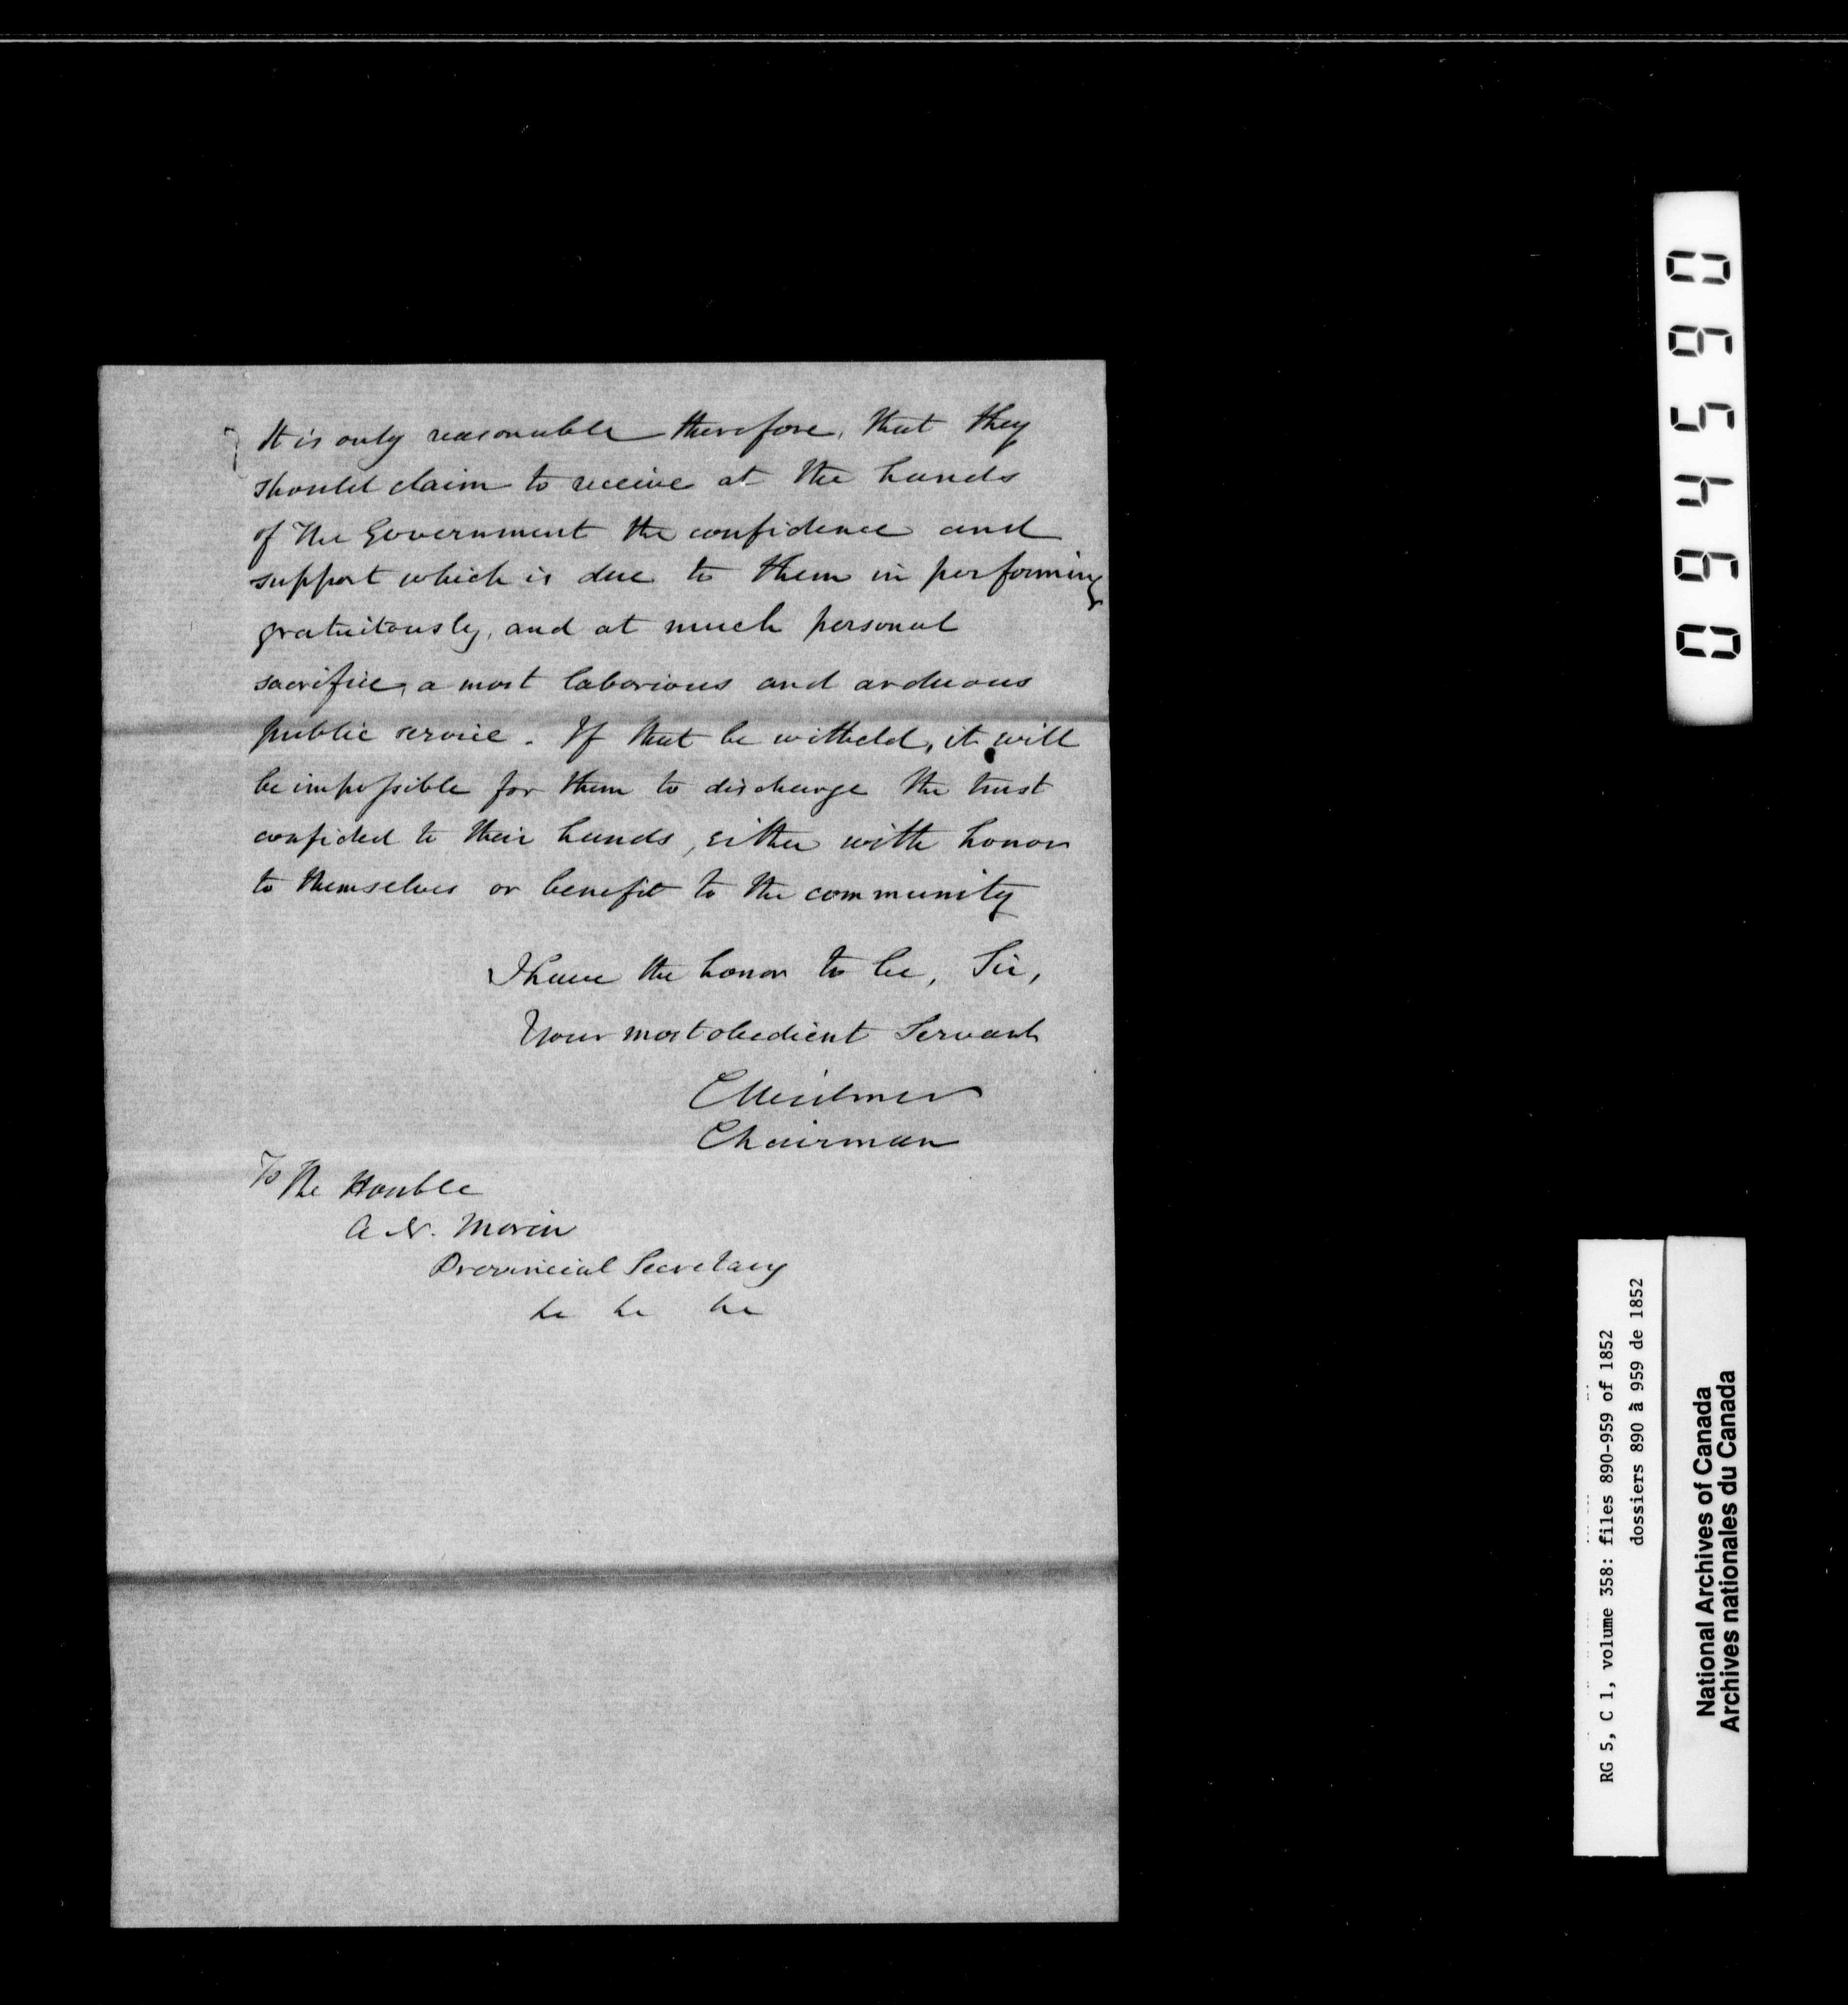 It is only reasonable therefore, that they
should claim to receive at the hands
of the Government the confidence and
support which is due to them in performing
gratuitously, and at much personal
sacrifice, a most laborious and arduous
public service. If that be witheld, it will
be impossible for them to discharge the trust
confided to their hands, either with honor
to themselves or benefit to the community
I have the honor to be, Sir,
Your most obedient Servant
Chairman
To The Honble
A N. Morin
Provincial Secretary
&c &c &c
094590
RG 5, C 1, volume 358: files 890-959 of 1852
dossiers 890 à 959 de 1852
National Archives of Canada
Archives nationales du Canada